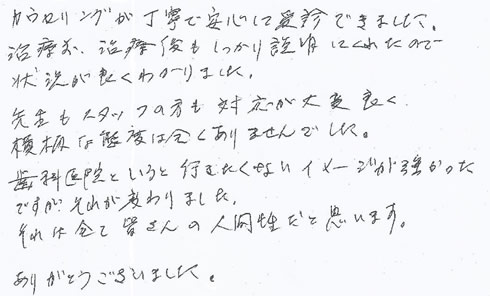 カウンセリングが丁寧で安心して受診できました。
治療前、治療後もしっかり説明してくれたので
状況が良くわかりました。
先生もスタッフの方も対応が大変良く
横柄な態度は全くありませんでした。
歯科医院というと行きたくないイメージが強かった
ですが、それが変わりました。
それは全て皆さんの人間性だと思います。
ありがとうございました。